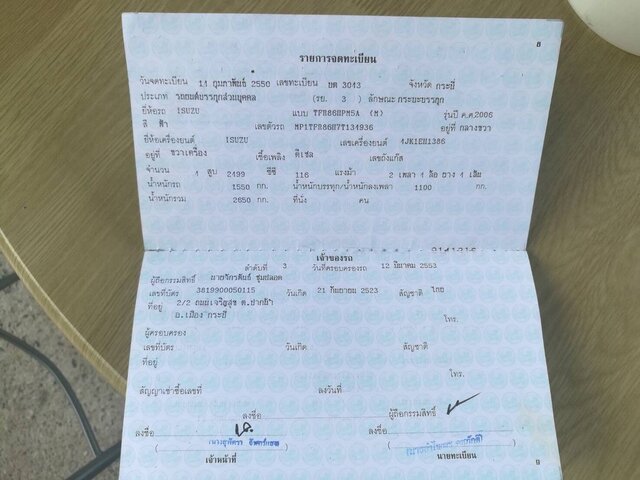 8
รายการจดทะเบียน
วันจดทะเบียน 14 กุมภาพันธ์ 2550 เลขทะเบียน บต 3043 จังหวัด กระบี่
ประเภท รถยนต์บรรทุกส่วนบุคคล (รย. 3 ) ลักษณะ กระบะบรรทุก
ยี่ห้อรถ ISUZU แบบ (M) รุ่นปี ค.ศ.2006
สี ฟ้า เลขตัวรถ MP1TFR86H7T134936 อยู่ที่ กลางขวา
ยี่ห้อเครื่องยนต์ ISUZU เลขเครื่องยนต์ 4JK1EH1386
อยู่ที่ ขวาเครื่อง เชื้อเพลิง ดีเซล เลขถังแก๊ส
จำนวน 4 สูบ 2499 ซีซี 116 แรงม้า 2 เพลา 4 ล้อ ยาง 4 เส้น
น้ำหนักรถ 1550 กก. น้ำหนักบรรทุก/น้ำหนักลงเพลา 1100 กก.
น้ำหนักรวม 2650 กก. ที่นั่ง คน
เจ้าของรถ
ลำดับที่ 3 วันที่ครอบครองรถ 12 มีนาคม 2553
ผู้ถือกรรมสิทธิ์
เลขที่บัตร 3819900050115 วันเกิด 21 กันยายน 2523 สัญชาติ ไทย
ที่อยู่ 2/2 ถนนเจริญสุข ต.ปากน้ำ
อ.เมือง กระบี่ โทร.
ผู้ครอบครอง
เลขที่บัตร วันเกิด สัญชาติ
ที่อยู่
โทร.
สัญญาเช่าซื้อเลขที่ ลงวันที่
ลงชื่อ ผู้ถือกรรมสิทธิ์
ลงชื่อ ลงชื่อ
เจ้าหน้าที่ นายทะเบียน
9